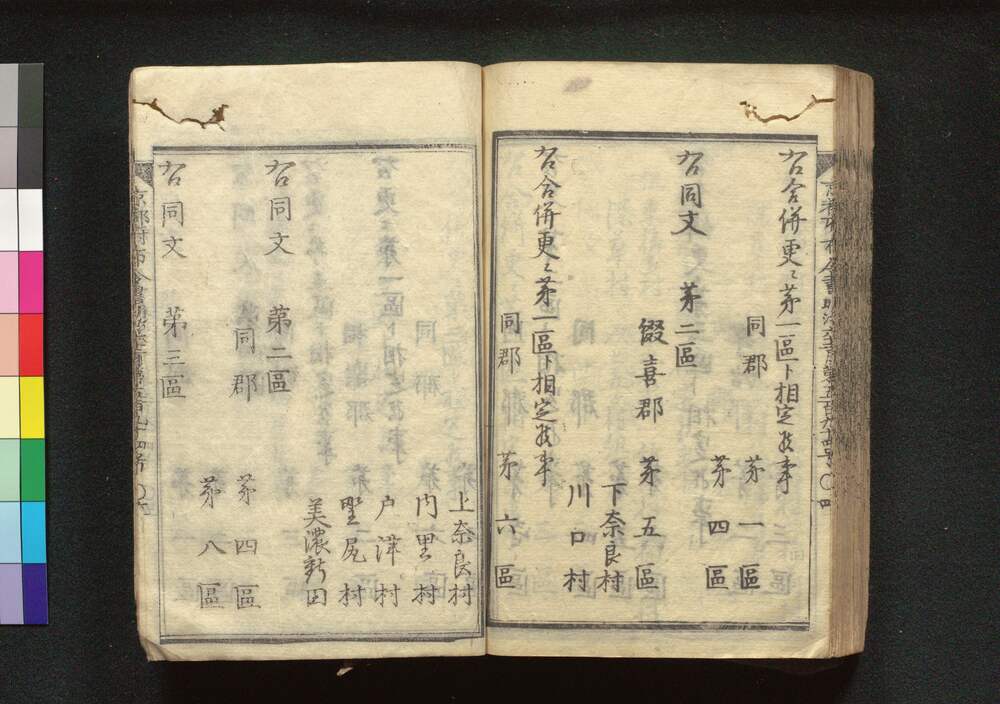 右合併更ニ茅一區ト相定候事
同郡 茅一區
茅四區
右同文 茅二區
綴喜郡 茅五區
下奈良村
川口村
右合併更ニ茅一區ト相定候事
同郡 茅六區
上奈良村
内里村
戸津村
野尻村
美濃新田
右同文 茅二區
同郡 茅四區
茅八區
右同文 茅三區
京都府布令書明治